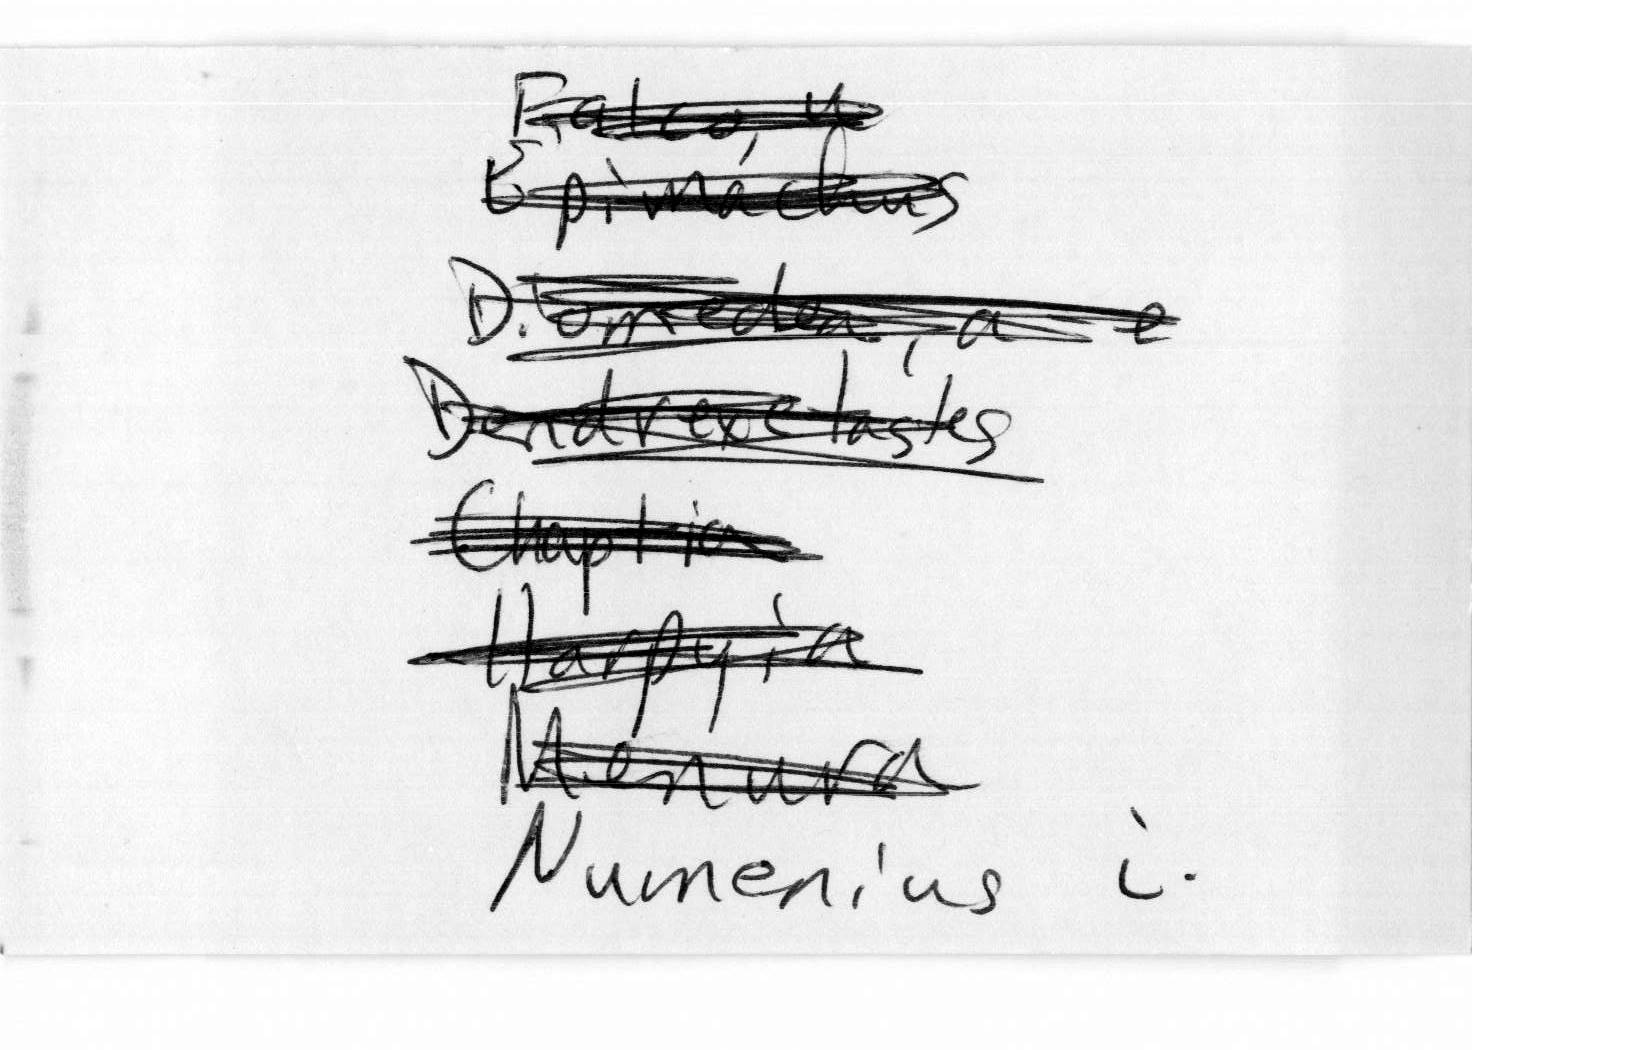 Falco, u
Epimachus
Diomedea, a e
Dendrexetastes
Chaptia
Harpyia
Menura
Numenius i.